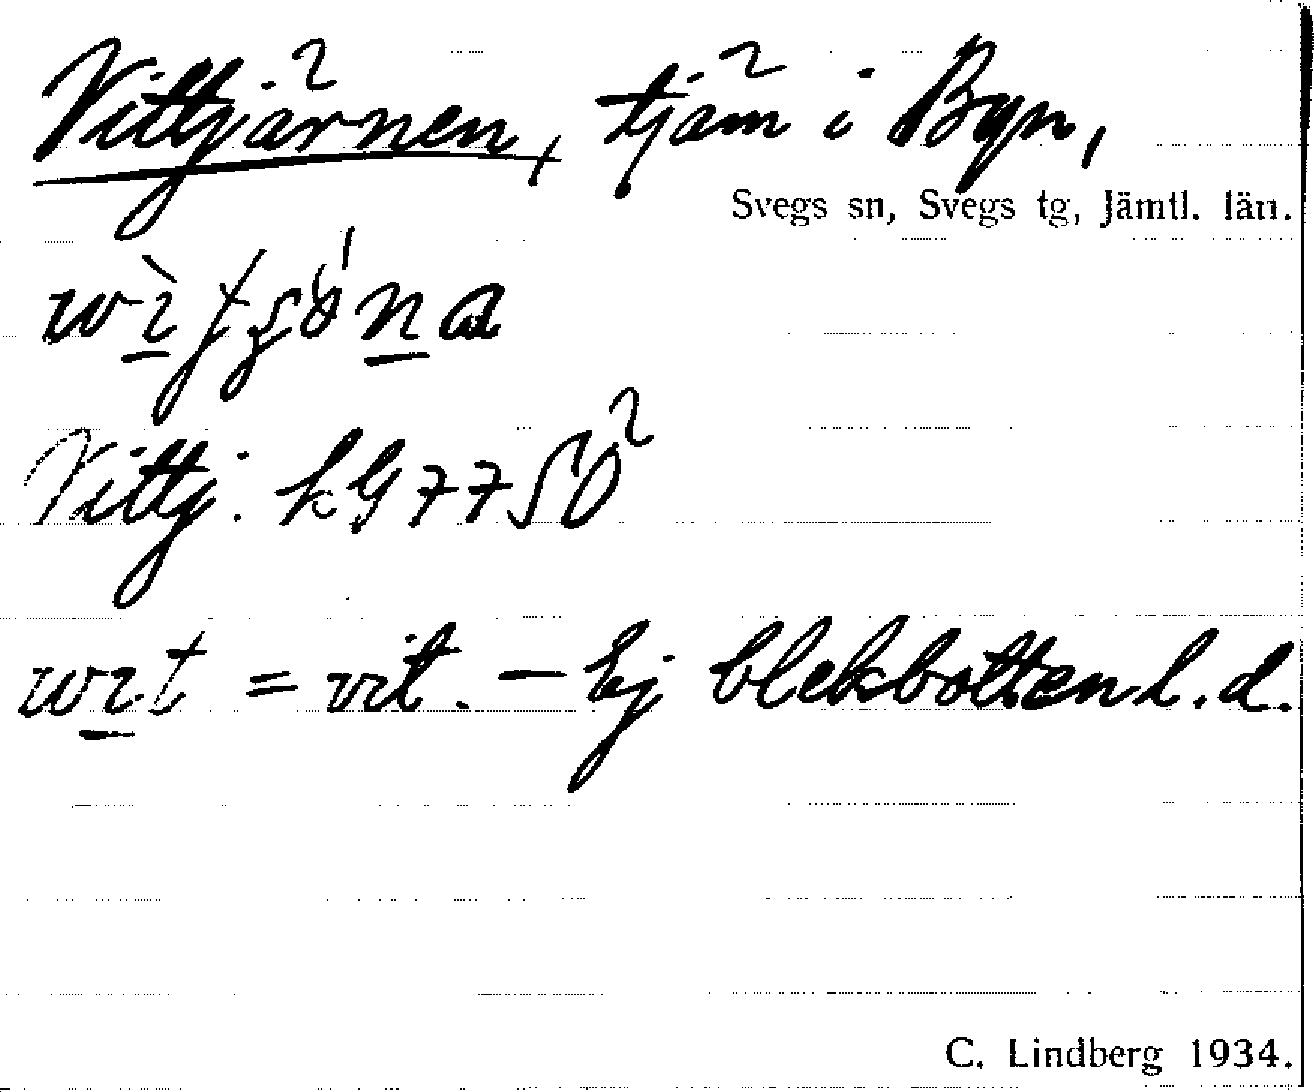 Vittjärnen, tjärn i Byn,
Svegs sn, Svegs tg, Jämtl. län.
Vittj: kG 77 50
wıt = vit. – hj blekbotten l. d.
C. Lindberg 1934.